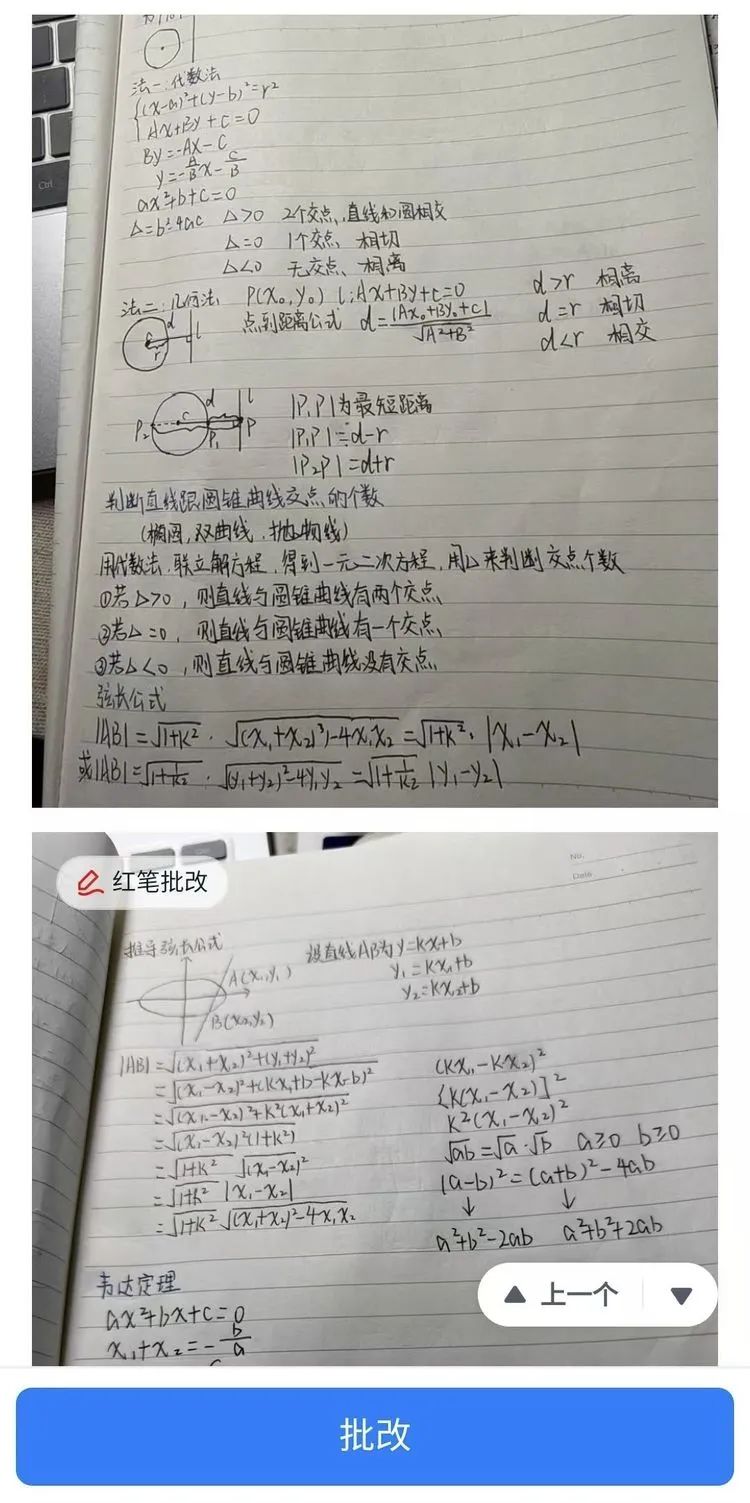 法一:代数法
(x-a)²+(y-b)²=r²
Ax+By+C=0
By=-Ax-C
y=-A/B x-C/B
ax²+b+c=0
Δ=b²-4ac Δ>0 2个交点,直线和圆相交
Δ=0 1个交点、相切
Δ<0 无交点、相离
法二:几何法 P(x₀,y₀) l:Ax+By+C=0 d>r 相离
点到距离公式 d=|Ax₀+By₀+C|/√A²+B² d=r 相切
d<r 相交
d l
c
r
d l
P₂ c P₁ P
|P₁P|为最短距离
|P₁P|=d-r
|P₂P|=d+r
判断直线跟圆锥曲线交点的个数
(椭圆,双曲线,抛物线)
用代数法,联立解方程,得到一元二次方程,用Δ来判断交点个数
①若Δ>0,则直线与圆锥曲线有两个交点
②若Δ=0,则直线与圆锥曲线有一个交点
③若Δ<0,则直线与圆锥曲线没有交点
弦长公式
|AB|=√1+K²·√(x₁+x₂)²-4x₁x₂=√1+K²·|x₁-x₂|
或|AB|=√1+1/K²·√(y₁+y₂)²-4y₁y₂=√1+1/K² |y₁-y₂|
Ctrl
红笔批改
No.
Date
推导弦长公式 设直线AB为y=Kx+b
A(x₁,y₁) y₁=Kx₁+b
B(x₂,y₂) y₂=Kx₂+b
|AB|=√(x₁+x₂)²+(y₁+y₂)²
=√(x₁-x₂)²+(Kx₁+b-Kx₂-b)²
=√(x₁-x₂)²+K²(x₁+x₂)²
=√(x₁-x₂)²(1+K²)
=√1+K² √(x₁-x₂)²
=√1+K² |x₁-x₂|
=√1+K² √(x₁+x₂)²-4x₁x₂
(Kx₁-Kx₂)²
[K(x₁-x₂)]²
K²(x₁-x₂)²
√ab=√a·√b a≥0 b≥0
(a-b)²=(a+b)²-4ab
↓ ↓
a²+b²-2ab a²+b²+2ab
韦达定理
ax²+bx+c=0
x₁+x₂=-b/a
上一个
批改